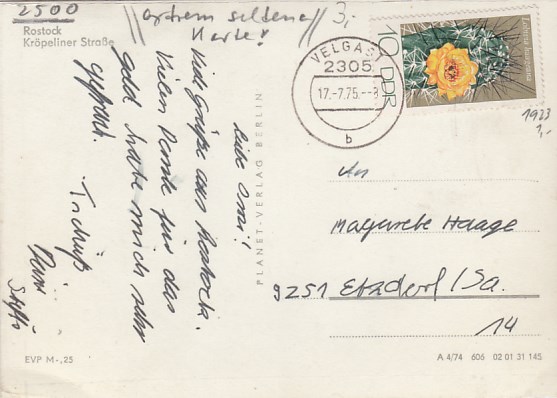 2500
Rostock
Kröpeliner Straße
//extrem seltene//
Karte!
3,-
VELGAST
2305
17.-7.75.--8
b
10 DDR
1983
1,-
Liebe Omi!
Viele Grüße aus Rostock.
Vielen Danke für das
Geld habe mich sehr
gefreut.
Tschüß
Deine
Steffi
PLANET-VERLAG BERLIN
An
Magarete Haage
9251 Etzdorf/Sa.
14
EVP M -,25
A 4/74 606 02 01 31 145